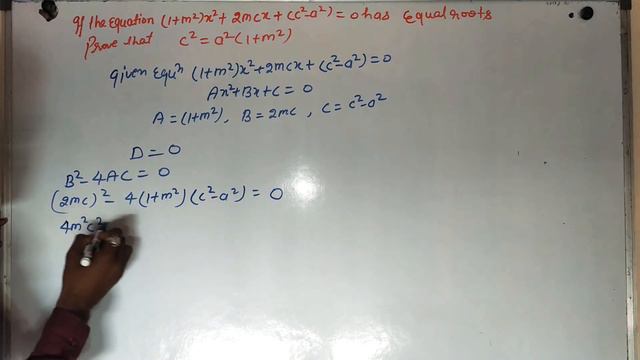 If the Equation (1+m²)x² + 2mcx + (c²-a²) = 0 has Equal roots
Prove that c² = a²(1+m²)
given Equⁿ (1+m²)x²+2mcx+(c²-a²)=0
Ax²+Bx+C = 0
A = (1+m²), B = 2mc , C = c²-a²
D = 0
B²-4AC = 0
(2mc)² - 4(1+m²)(c²-a²) = 0
4m²c²